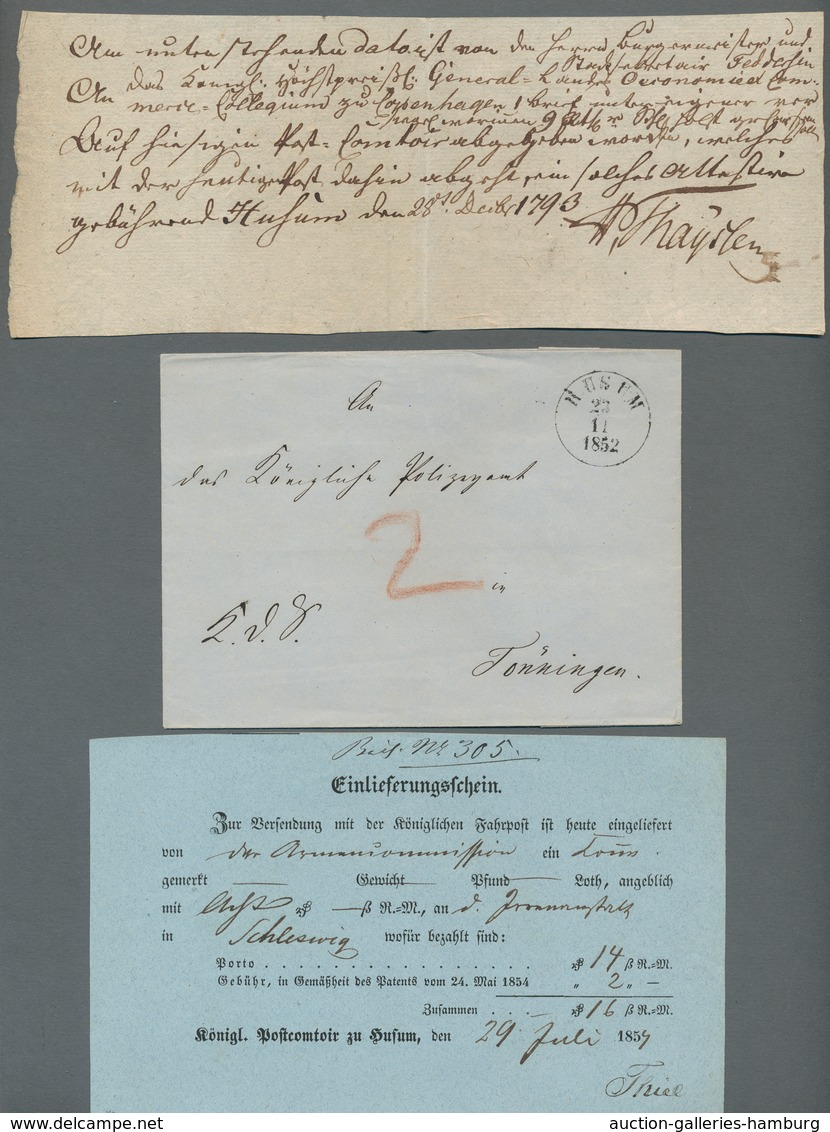 Am unten stehenden dato ist von den Herrn Burgermeister und
Stadtsekretair Feddersen
An das Königl: Höchstpreißl: General=Landes Oeconomie Com
merce=Collegium zu Copenhagen 1 brief unter eigener ver
Auf hiesigen Post=Comtoir abgegeben worden, welches
mit der heutigen Post dahin abgeht, ein solches Attestire
gebührend Husum den 28t Decbr 1793
HUSUM
23
11
1852
An
das Königliche Polizeyamt
2
in
K. d. S.
Tönningen.
Beil. Nr 305.
Einlieferungsschein.
Zur Versendung mit der Königlichen Fahrpost ist heute eingeliefert
von der Armencommission ein Couv.
gemerkt Gewicht Pfund Loth, angeblich
mit Acht ß R.=M., an d. Irrenanstalt
in Schleswig wofür bezahlt sind:
Porto 14 ß R.=M.
Gebühr, in Gemäßheit des Patents vom 24. Mai 1854 " 2 " —
Zusammen 16 ß R.=M.
Königl. Postcomtoir zu Husum, den 29 Juli 1857
Thiel
auction-galleries-hamburg